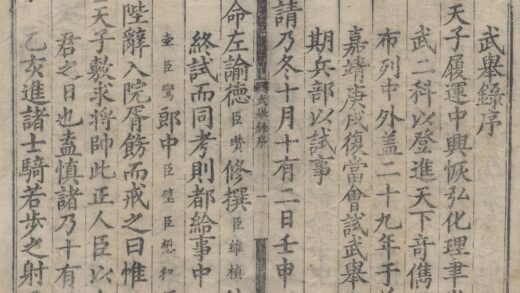 武舉錄序
天子履運中興恢弘化理聿
武二科以登進天下奇儁
布列中外蓋二十九年于
嘉靖庚戌復當會試武舉
期兵部以試事
請乃冬十月十有二日壬申
武舉錄序
一
命左諭德臣瓚修撰臣維楨
終試而同考則都給事中
臣鸞郎中臣璧臣懋和
陛辭入院胥飭而戒之曰惟
天子敷求將帥此正人臣以
君之日也盍慎諸乃十有
乙亥進諸士騎若步之射